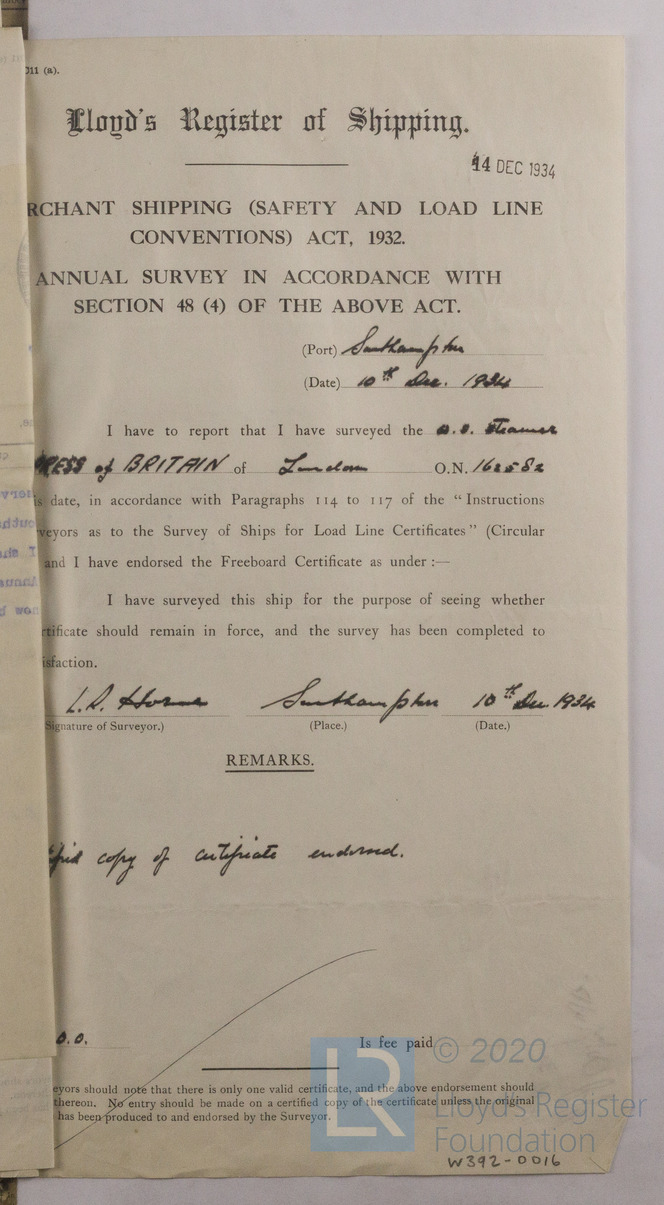 011 (a).
Lloyd's Register of Shipping.
14 DEC 1934
RCHANT SHIPPING (SAFETY AND LOAD LINE
CONVENTIONS) ACT, 1932.
ANNUAL SURVEY IN ACCORDANCE WITH
SECTION 48 (4) OF THE ABOVE ACT.
(Port) Southampton
(Date) 10th Dec. 1934
I have to report that I have surveyed the s.s. Steamer
RESS of BRITAIN of London O.N. 162582
is date, in accordance with Paragraphs 114 to 117 of the "Instructions
veyors as to the Survey of Ships for Load Line Certificates" (Circular
and I have endorsed the Freeboard Certificate as under :—
I have surveyed this ship for the purpose of seeing whether
rtificate should remain in force, and the survey has been completed to
isfaction.
L.S. Horne Southampton 10th Dec. 1934
Signature of Surveyor.) (Place.) (Date.)
REMARKS.
copy of certificate endorsed.
Is fee paid
© 2020
eyors should note that there is only one valid certificate, and the above endorsement should
thereon. No entry should be made on a certified copy of the certificate unless the original
has been produced to and endorsed by the Surveyor.
LR
Lloyd's Register
Foundation
W392-0016